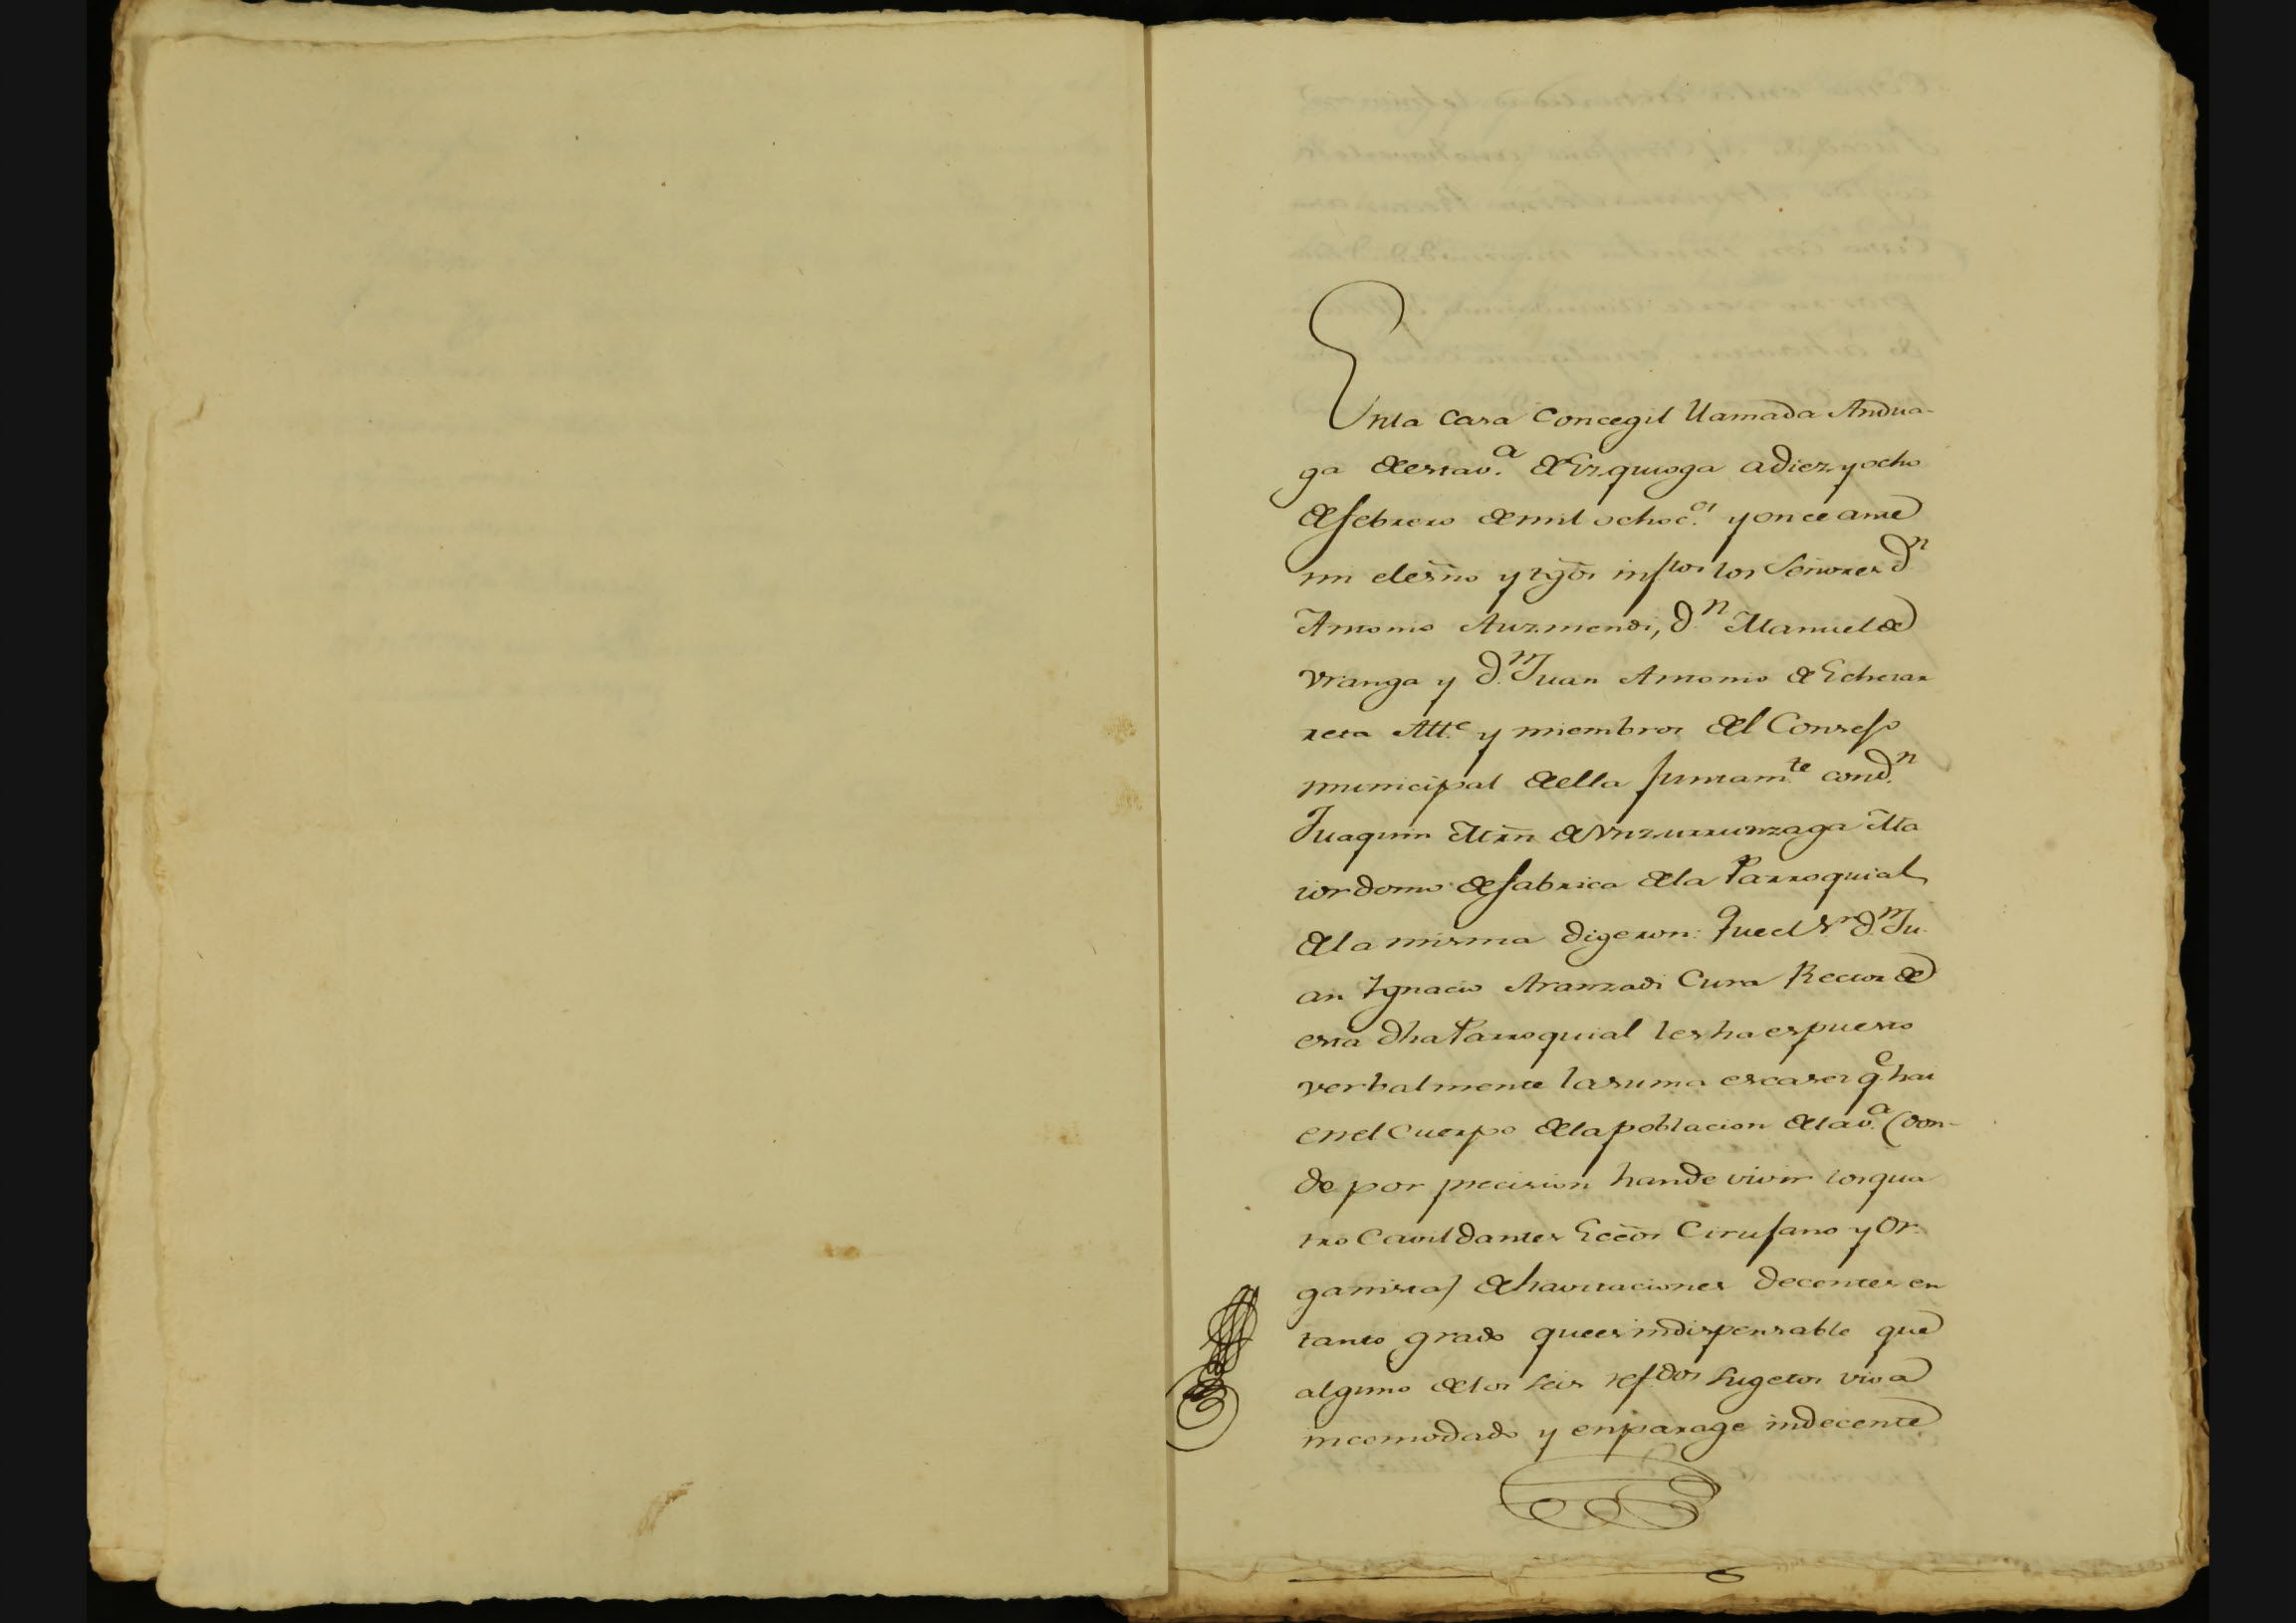 Enla Casa Concegil llamada Andua-
ga de esta v.ª de Ezquioga a diez y ocho
de febrero de mil ochoc.os y once ante
mi el es̃no y tg̃os infros los Señores d.n
Antonio Auzmendi, d.n Manuel de
Vranga y d.n Juan Antonio de Echevar
reta Alt.e y miembros del Consejo
municipal de ella juntam.te con d.n
Juaquin Mrñ de Vnzurrunzaga Ma
iordomo de fabrica de la Parroquial
de la misma digeron: Que el S.r d.n Ju
an Ygnacio Aranzadi Cura Rector de
esta dha Parroquial les ha espuesto
verbalmente la suma escasez q.e hai
en el Cuerpo de la poblacion de la v.ª (don-
de por precision han de vivir los qua
tro Cavildantes Eccõs Cirujano y Or
ganista) de havitaciones decentes en
tanto grado que es indispensable que
alguno de los seis ref.dos sugetos viva
incomodado y en parage indecente